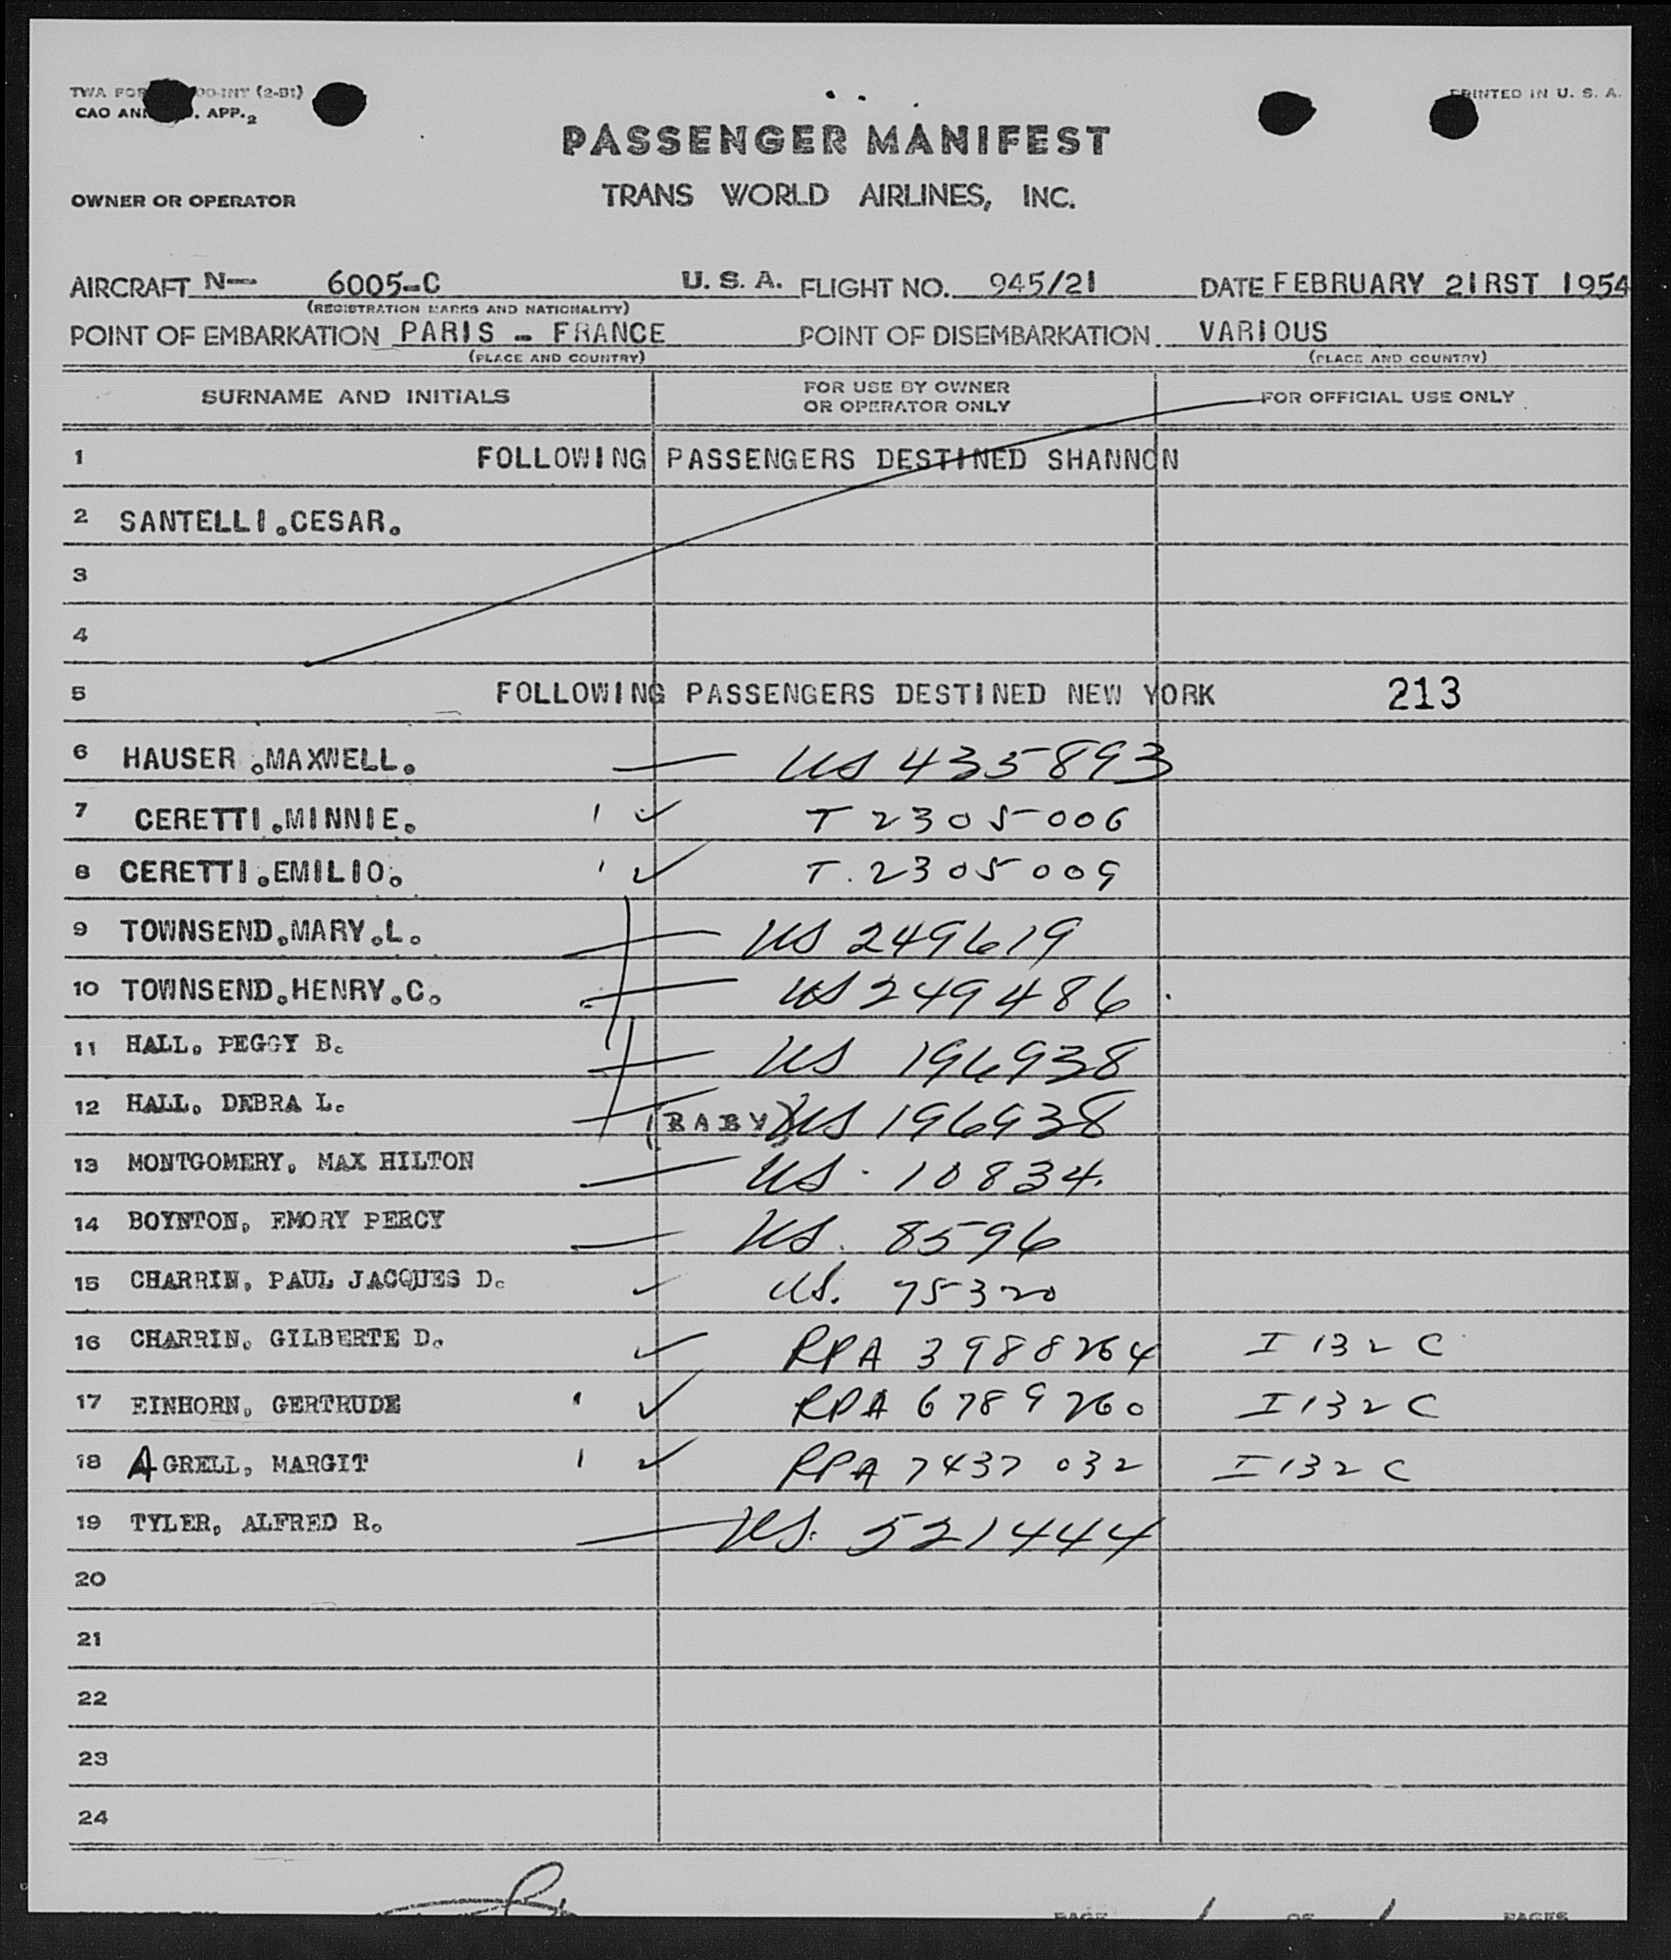 TWA FOR 00-INT (2-51)
PRINTED IN U. S. A.
CAO ANN . APP. 2
PASSENGER MANIFEST
OWNER OR OPERATOR TRANS WORLD AIRLINES, INC.
AIRCRAFT N— 6005-C U. S. A. FLIGHT NO. 945/21 DATE FEBRUARY 21RST 1954
(REGISTRATION MARKS AND NATIONALITY)
POINT OF EMBARKATION PARIS - FRANCE POINT OF DISEMBARKATION VARIOUS
(PLACE AND COUNTRY) (PLACE AND COUNTRY)
SURNAME AND INITIALS FOR USE BY OWNER OR OPERATOR ONLY FOR OFFICIAL USE ONLY
1 FOLLOWING PASSENGERS DESTINED SHANNON
2 SANTELLI.CESAR.
3
4
5 FOLLOWING PASSENGERS DESTINED NEW YORK 213
6 HAUSER .MAXWELL. — US 435893
7 CERETTI.MINNIE. ' ✓ T 2305006
8 CERETTI.EMILIO. ' ✓ T. 2305009
9 TOWNSEND.MARY.L. — US 249619
10 TOWNSEND.HENRY.C. — US 249486
11 HALL. PEGGY B. — US 196938
12 HALL. DEBRA L. — (BABY) US 196938
13 MONTGOMERY, MAX HILTON — US. 10834.
14 BOYNTON, EMORY PERCY — US. 8596
15 CHARRIN, PAUL JACQUES D. ✓ US. 75320
16 CHARRIN, GILBERTE D. ✓ RPA 3988264 I 132 C
17 EINHORN, GERTRUDE ' ✓ RPA 6789260 I 132 C
18 AGRELL, MARGIT ' ✓ RPA 7437032 I 132 C
19 TYLER, ALFRED R. — US. 521444
20
21
22
23
24
PAGE 1 OF 1 PAGES